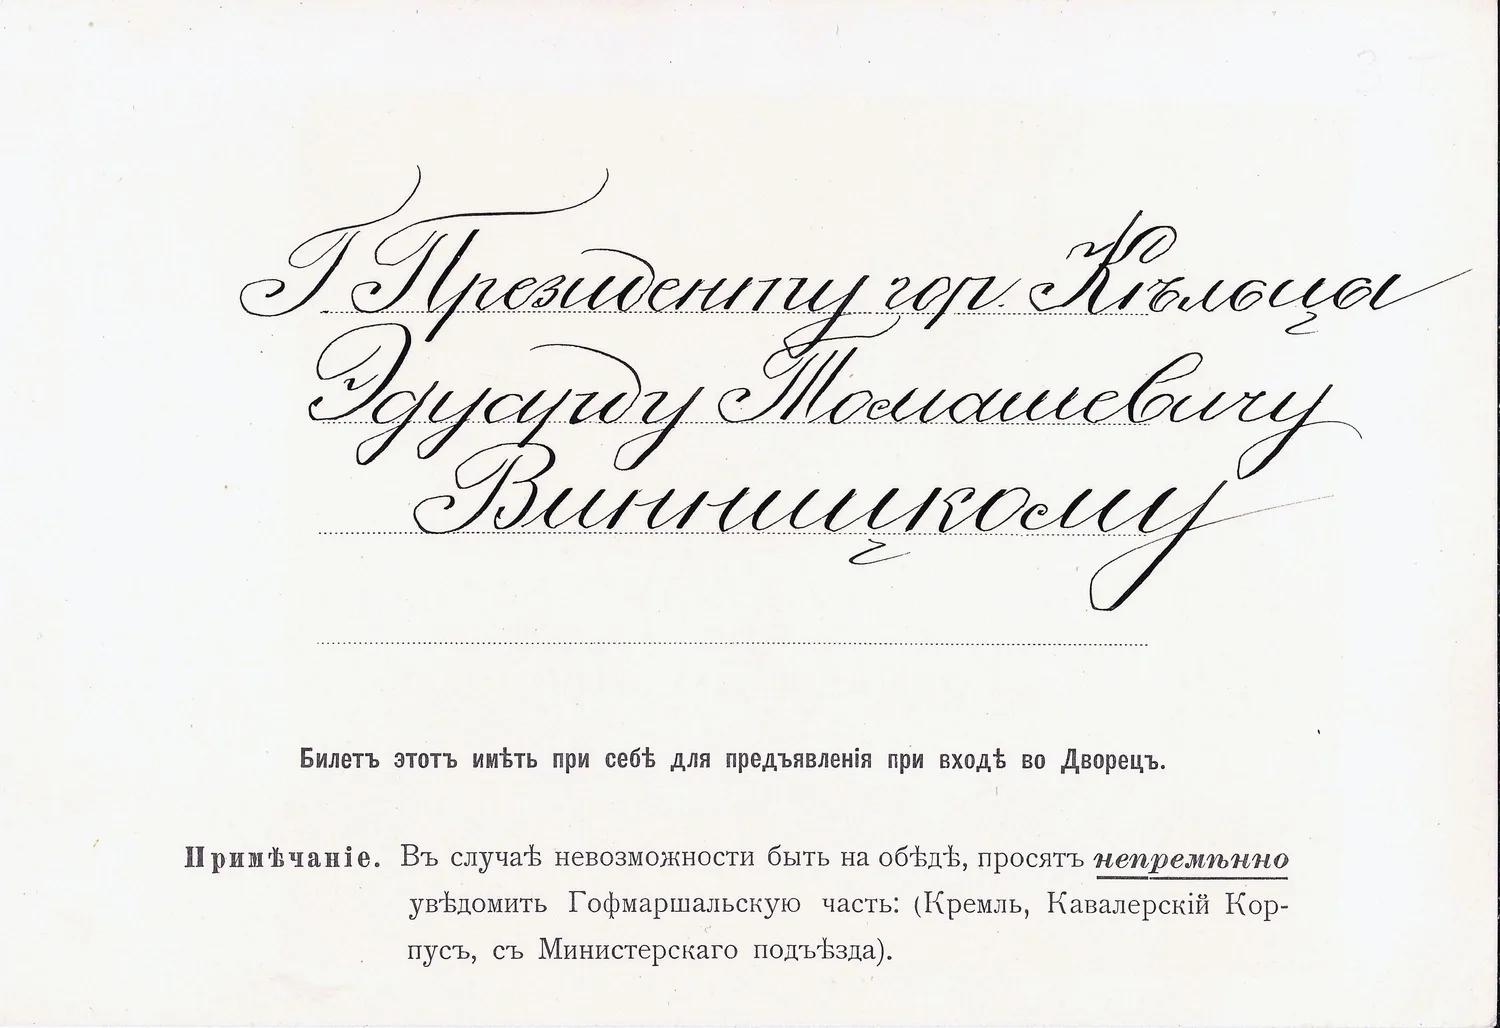 Г Президенту гор. Кѣльцы
Эдуарду Томашевичу
Винницкому
Билетъ этотъ имѣть при себѣ для предъявленія при входѣ во Дворецъ.
Примѣчаніе. Въ случаѣ невозможности быть на обѣдѣ, просятъ непремѣнно
увѣдомить Гофмаршальскую часть: (Кремль, Кавалерскій Кор-
пусъ, съ Министерскаго подъѣзда).